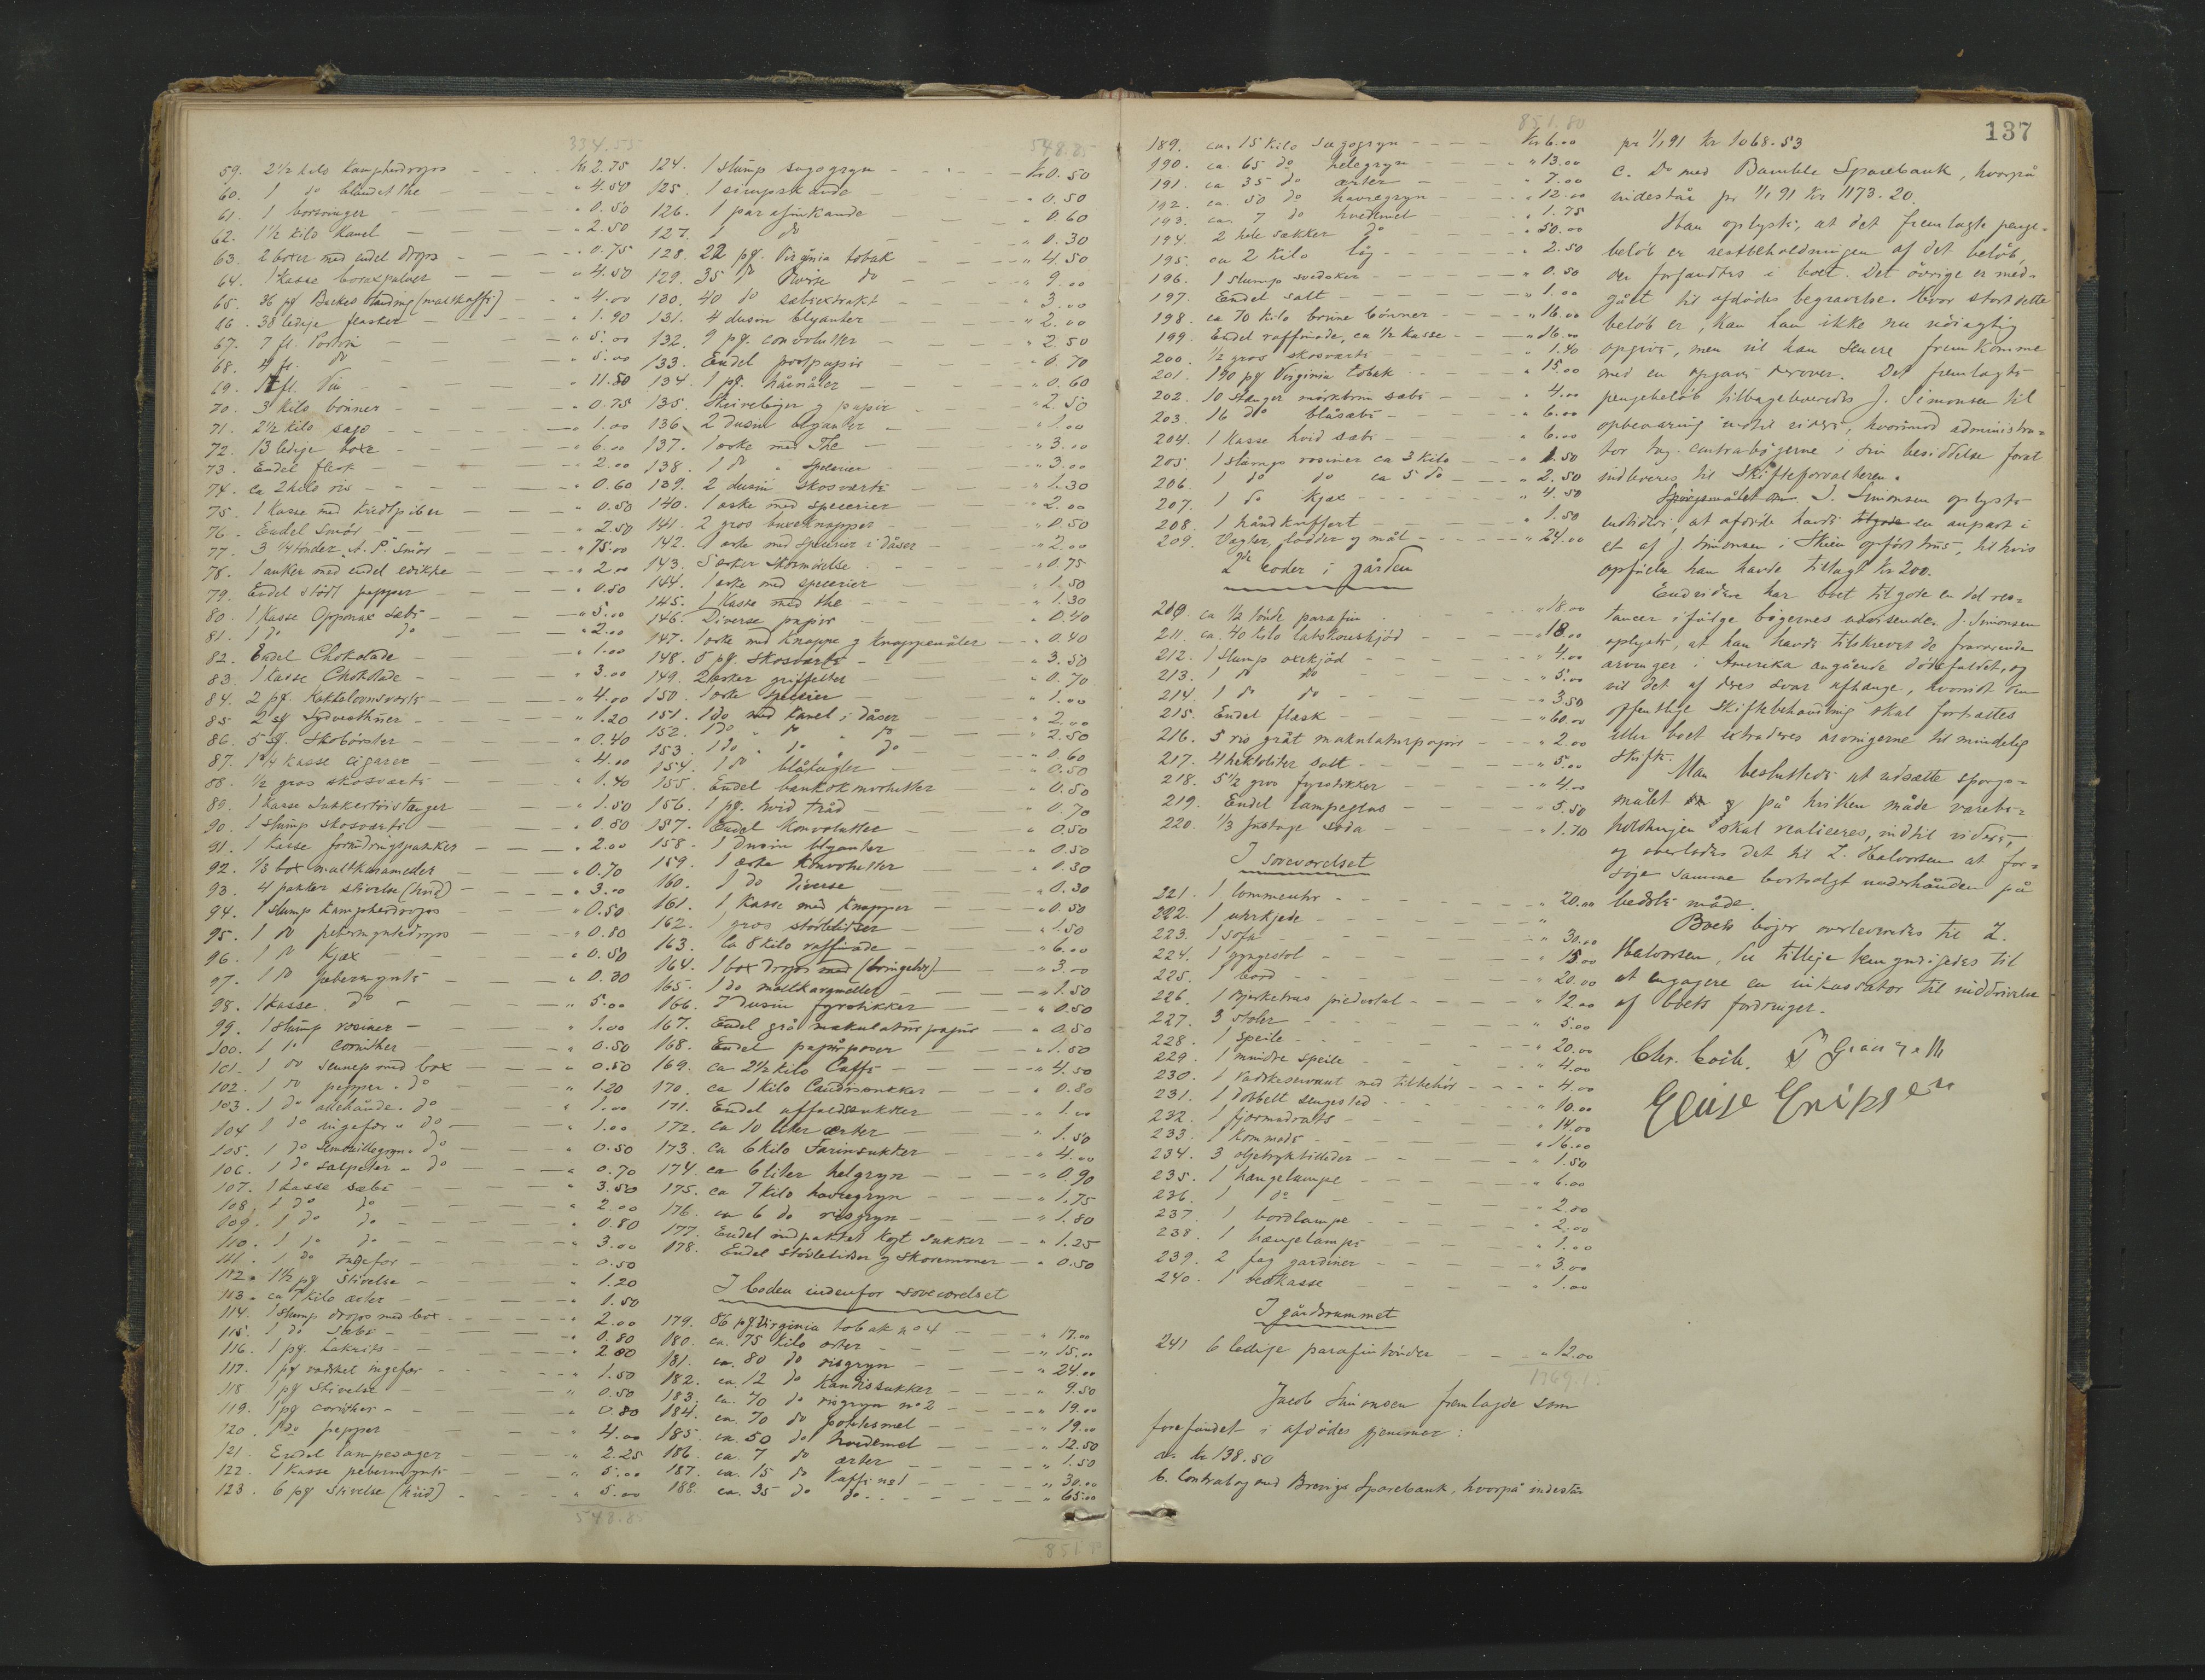 334.55
59. 2½ kilo Kampherdrops - Kr 2.75
60. 1 do blandet the - " 4.50
61. 1 borsvinger - " 0.50
62. 1½ kilo Kanel - " 2.50
63. 2 boxer med endel drops - " 0.75
64. 1 Kasse boraxpulver - " 4.50
65. 36 pg (maltkaffe) - " 4.00
66. 38 ledige flasker - " 1.90
67. 7 fl. Portvin - " 5.00
68. 4 fl. do - " 5.00
69. fl. Vin - " 11.80
70. 3 kilo bönner - " 0.75
71. 2½ kilo sago - " 1.00
72. 13 ledige boxe - " 6.00
73. Endel flesk - " 2.00
74. ca 2 kilo ris - " 0.60
75. 1 Kasse med Kridtpiber - " 0.50
76. Endel Smör - " 2.50
77. 3 ¼ tönder "A. P." Smör - " 75.00
78. 1 anker med endel edikke - " 2.00
79. Endel stödt pepper - " 0.50
80. 1 Kasse Opponax sæbe - " 5.00
81. 1 do do - " 2.00
82. Endel Chokolade - " 1.00
83. 1 Kasse Chokolade - " 3.00
84. 2 pg. Kakkelovnsværte - " 4.00
85. 2 Sydvesthuer - " 1.20
86. 5 Skobörster - " 0.40
87. 1¾ Kasse cigarer - " 4.00
88. ½ gros skosværte - " 1.40
89. 1 Kasse Sukkertöistænger - " 1.50
90. 1 slump skosværte - " 0.80
91. 1 Kasse - " 2.00
92. ⅓ box maltkarameller - " 0.70
93. 4 pakker stivelse (hvid) - " 3.00
94. 1 slump Kampherdrops - " 0.50
95. 1 do pebermyntedrops - " 0.80
96. 1 do Kjæx - " 0.50
97. 1 do pebermynte - " 0.30
98. 1 kasse do - " 5.00
99. 1 slump rosiner - " 1.00
100. 1 do corinther - " 0.50
101. 1 do sennep med box - " 0.50
102. 1 do pepper " do - " 1.20
103. 1 do allehånde " do - " 1.00
104. 1 do ingefær " do - " 1.00
105. 1 do Semouillegryn " do - " 0.50
106. 1 do Salpeter " do - " 0.70
107. 1 kasse sæbe - " 3.50
108. 1 do do - " 2.00
109. 1 do do - " 0.80
110. 1 do do - " 3.00
111. 1 do ingefær - " 0.50
112. 1½ pg Stivelse - " 1.20
113. ca 7 kilo ærter - " 1.50
114. 1 slump drops med box - " 2.00
115. 1 do Sæbe - " 0.80
116. 1 pg. Lakrits - " 2.00
117. 1 pg vasket ingefær - " 1.50
118. 1 pg Stivelse - " 0.50
119. 1 pg corinther - " 0.80
120. 1 do pepper - " 4.00
121. Endel lampesager - " 2.25
122. 1 Kasse pebermynte - " 5.00
123. 6 pg Stivelse (hvid) - " 5.00
548.85
548.85
124. 1 slump sagogryn - Kr 0.50
125. 1 sirupskande - " 0.50
126. 1 parafinkande - " 0.60
127. 1 do - " 0.30
128. 22 pg. Virginia tobak - " 4.50
129. 35 do do - " 9.00
130. 40 do sæbeextrakt - " 3.00
131. 4 dusin blyanter - " 2.00
132. 9 pg. convolutter - " 2.50
133. Endel postpapir - " 0.70
134. 1 pg. hårnåler - " 0.60
135. Skriveböger og papir - " 2.50
136. 2 dusin blyanter - " 1.00
137. 1 æske med The - " 3.00
138. 1 do " Specerier - " 3.00
139. 2 dusin skosværte - " 1.30
140. 1 æske med specerier - " 2.00
141. 2 gros buxeknapper - " 0.50
142. 1 æske med specerier i dåser - " 2.00
143. 5 æsker Skosmörelse - " 0.75
144. 1 æske med specerier - " 1.50
145. 1 Kasse med the - " 1.30
146. Diverse papir - " 0.40
147. 1 æske med Knappe og Knappenåler - " 0.40
148. 5 pg. skosværte - " 3.50
149. 2 æsker grifler - " 0.70
150. 1 æske specier - " 1.00
151. 1 do med Kanel i dåser " 2.00
152. 1 do " do " do " 2.50
153. 1 do " do " do " 0.60
154. 1 do blåkugler - " 0.50
155. Endel bankokonvolutter " 0.50
156. 1 pg. hvid tråd - " 0.70
157. Endel Konvolutter - " 0.50
158. 1 dusin blyanter - " 0.50
159. 1 æske Konvolutter - " 0.30
160. 1 do diverse - " 0.30
161. 1 Kasse med Knapper - " 0.50
162. 1 gros stövlebidser - " 1.50
163. Ca 8 kilo raffinade - " 6.00
164. 1 box drops med (bringebær) - " 3.00
165. 1 do maltkarameller - " 1.50
166. 7 dusin fyrstikker - " 0.50
167. Endel grå makulaturpapir - " 0.50
168. Endel papirposer - " 1.50
169. ca 2½ kilo Caffe - " 4.50
170. ca 1 kilo Candissukker - " 0.80
171. Endel affaldssukker - " 1.00
172. ca 10 liter ærter - " 1.50
173. ca 6 kilo Farinsukker - " 4.00
174. ca 6 liter helgryn - " 0.90
175. ca 7 kilo havregryn - " 1.75
176. ca 6 do risgryn - " 1.80
177. Endel indpakket Kogt sukker - " 1.25
178. Endel stövlebidser og skoremmer - " 0.50
I boden indenfor soveværelset
179. 86 pg. Virginia tobak no 4 - " 17.00
180. ca. 75 kilo ærter - " 15.00
181. ca. 80 do risgryn - " 24.00
182. ca. 12 do Kandissukker - " 9.50
183. ca. 70 do risgryn no 2 - " 19.00
184. ca. 70 do potetesmel - " 19.00
185. ca. 50 do hvedemel - " 12.50
186. ca. 7 do ærter - " 1.50
187. ca. 15 do Kaffe no 1 - " 30.00
188. ca. 35 do do - " 65.00
851.80
851.80
137
189. ca. 15 kilo sagogryn - Kr 6.00
190. ca. 65 do helegryn - " 13.00
191. ca 35 do ærter - " 7.00
192. ca. 50 do havregryn - " 12.00
193. ca. 7 do hvedemel - " 1.75
194. 2 hele sækker do - " 50.00
195. ca 2 kilo lög - " 2.50
196. 1 slump svedsker - " 0.50
197. Endel salt - " 1.00
198. ca 70 kilo brune bönner - " 16.00
199. Endel raffinade, ca ½ kasse - " 16.00
200. ½ gros skosværte - " 1.40
201. 190 pg Virginia tobak - " 15.00
202. 10 stænger mörkbrun sæbe - " 4.00
203. 16 do blåsæbe - " 6.00
204. 1 Kasse hvid sæbe - " 6.00
205. 1 slump rosiner ca 3 kilo - " 1.50
206. 1 do do ca 5 do - " 2.50
207. 1 do Kjæx - " 4.50
208. 1 håndkuffert - " 1.50
209. Vægter, lodder og mål - " 24.00
2de boder i gården
210. ca ½ tönde parafin - " 18.00
211. ca. 40 kilo labskouskjöd - " 18.00
212. 1 slump oxekjöd - " 4.00
213. 1 do do - " 5.00
214. 1 do do - " 3.50
215. Endel flæsk - " 60.00
216. 5 ris gråt makulaturpapir - " 2.00
217. 4 hektoliter salt - " 5.00
218. 5½ gros fyrstikker - " 4.00
219. Endel lampeglas - " 5.50
220. ⅓ fustage soda - " 1.70
I soveværelset
221. 1 lommeuhr - " 20.00
222. 1 uhrkjede - "
223. 1 sofa - " 30.00
224. 1 gyngestol - " 15.00
225. 1 bord - " 20.00
226. 1 bjerketræs piedestal - " 12.00
227. 3 stoler - " 5.00
228. 1 speile - " 20.00
229. 1 mindre speile - " 4.00
230. 1 Vaskeservant med tilbehör - " 4.00
231. 1 dobbelt sengested - " 10.00
232. 1 fjærmadrats - " 14.00
233. 1 Kommode - " 16.00
234. 3 oljetryktbilleder - " 1.50
235. 1 hængelampe - " 6.00
236. 1 do - " 2.80
237. 1 bordlampe - " 2.00
238. 1 hængelampe - " 1.00
239. 2 fag gardiner - " 3.00
240. 1 vedkasse - " 1.00
I gårdsrummet
241 6 ledige parafintönder - " 12.00
Jacob Simonsen fremlagde som
forefundet i afdödes gjemmer:
a. kr 138.50
b. Contrabog med Brevigs Sparebank, hvorpå indestår
pr 1/1 91 Kr 1068.53
c. Do med Bamble Sparebank, hvorpå
indestår pr 1/1 91 Kr 1173.20.
Han oplyste, at det fremlagte penge-
belöb er restbeholdningen af det belöb,
der forfandtes i boet. Det övrige er med-
gået til afdödes begravelse. Hvor stort dette
belöb er, kan han ikke nu nöiagtig
opgive, men vil han senere fremkomme
med en opgave derover. Det fremlagte
pengebelöb tilbageleveredes J. Simonsen til
opbevaring indtil videre, hvorimod administra-
tor tog contrabögerne i sin besiddelse forat
indleveres til Skifteforvalteren.
Spörgsmålet om J. Simonsen oplyste
endvidere, at afdöde havde tilgode en anpart i
et af J Simonsen i Skien opfört hus, til hvis
opförelse han havde tillagt Kr 200.
Endvidere har boet tilgode en del res-
tancer ifölge bögernes udvisende. J. Simonsen
oplyste, at han havde tilskrevet de fraværende
arvinger i Amerika angående dödsfaldet, og
vil det af deres svar afhænge, hvorvidt den
offentlige Skiftebehandling skal fortsættes
eller boet extraderes arvingerne til mindelig
skifte.
Man besluttede at udsætte sporgs-
målet om og på hvilken måde varebe-
holdningen skal realiseres, indtil videre,
og overlodes det til L. Halvorsen at for-
söge samme bortsolgt underhånden på
bedste måde.
Boets böger overleveredes til L.
Halvorsen, der tillige bemyndigedes til
at engagere en inkassator til inddrivelse
af boets fordringer.
Chr. Coch.
Eliise Eriksen